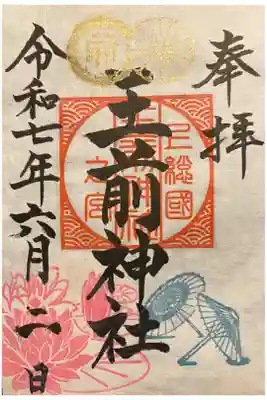 奉拝
上総國
玉前神社
令和七年六月二日